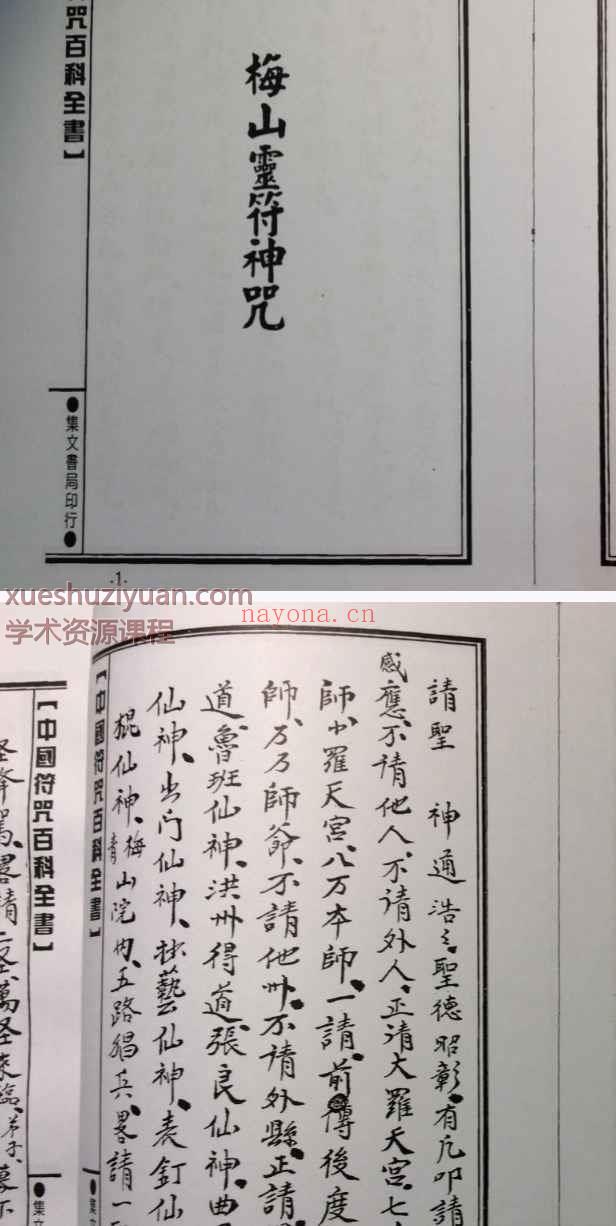 咒百科全書】
梅山靈符神咒
●集文書局印行●
·1·
xueshuziyuan.com
学术资源课程
nayona.cn
請聖 神通浩之聖德昭彰、有凡叩請
感應、不請他人、不請外人、正請大羅天宮、七
師、小羅天宮、八万本師、一請、前傳後度
師、万万師爺、不請他州、不請外縣、正請
道、魯班仙神、洪州得道、張良仙神、曲
仙神、出门仙神、扶藝仙神、表釘仙
棍仙神、梅山院内、五路猖兵、畧請一
青
【中國符咒百科全書】
【中國符咒百科全書】
●集